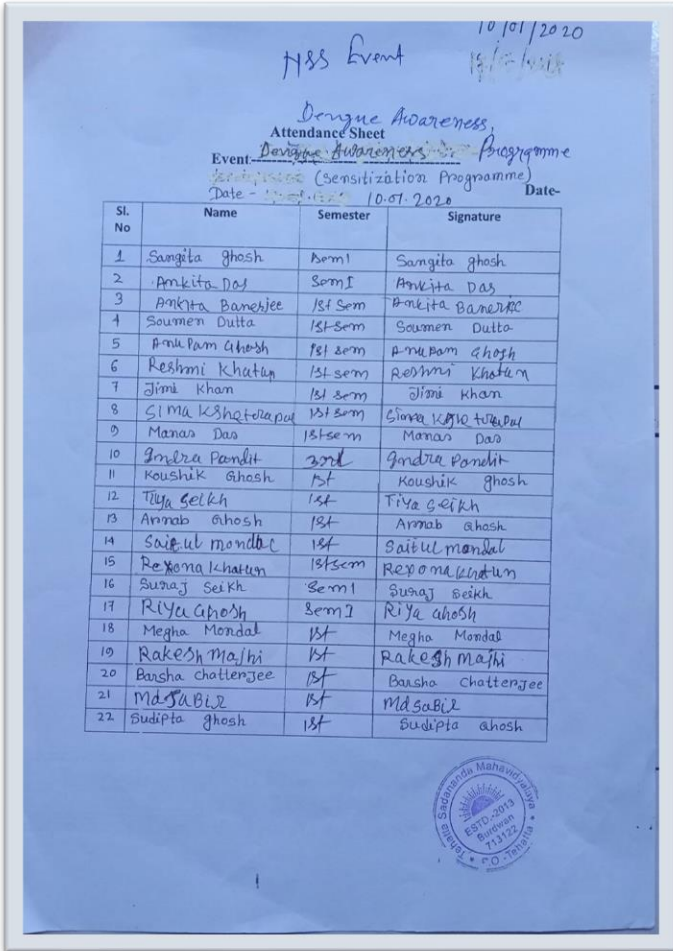 10/01/2020
NSS Event
Dengue Awareness,
Attendance Sheet
Event- Dengue Awareness Programme
(Sensitization Programme)
Date - 10.01.2020 Date-
Sl. No Name Semester Signature
1 Sangita ghosh Sem I Sangita ghosh
2 Ankita Das Sem I Ankita Das
3 Ankita Banerjee Ist Sem Ankita Banerjee
4 Soumen Dutta Ist sem Soumen Dutta
5 Anupam Ghosh Ist sem Anupam Ghosh
6 Reshmi Khatun Ist sem Reshmi Khatun
7 Jimi Khan Ist sem Jimi Khan
8 Sima Kshetrapal Ist sem Sima Kshetrapal
9 Manas Das Ist sem Manas Das
10 Indra Pandit 3rd Indra Pandit
11 Koushik Ghosh Ist Koushik ghosh
12 Tiya Seikh Ist Tiya Seikh
13 Arnab Ghosh Ist Arnab Ghosh
14 Saiful mondal Ist Saiful mondal
15 Rexona Khatun Ist sem Rexona Khatun
16 Suraj Seikh Sem I Suraj Seikh
17 Riya Ghosh Sem I Riya Ghosh
18 Megha Mondal Ist Megha Mondal
19 Rakesh Majhi Ist Rakesh Majhi
20 Barsha Chatterjee Ist Barsha Chatterjee
21 Md SaBiR Ist Md SaBiR
22 Sudipta ghosh Ist Sudipta Ghosh
Tehatta Sadananda Mahavidyalaya
ESTD.-2013
Burdwan
713122
P.O.-Tehatta